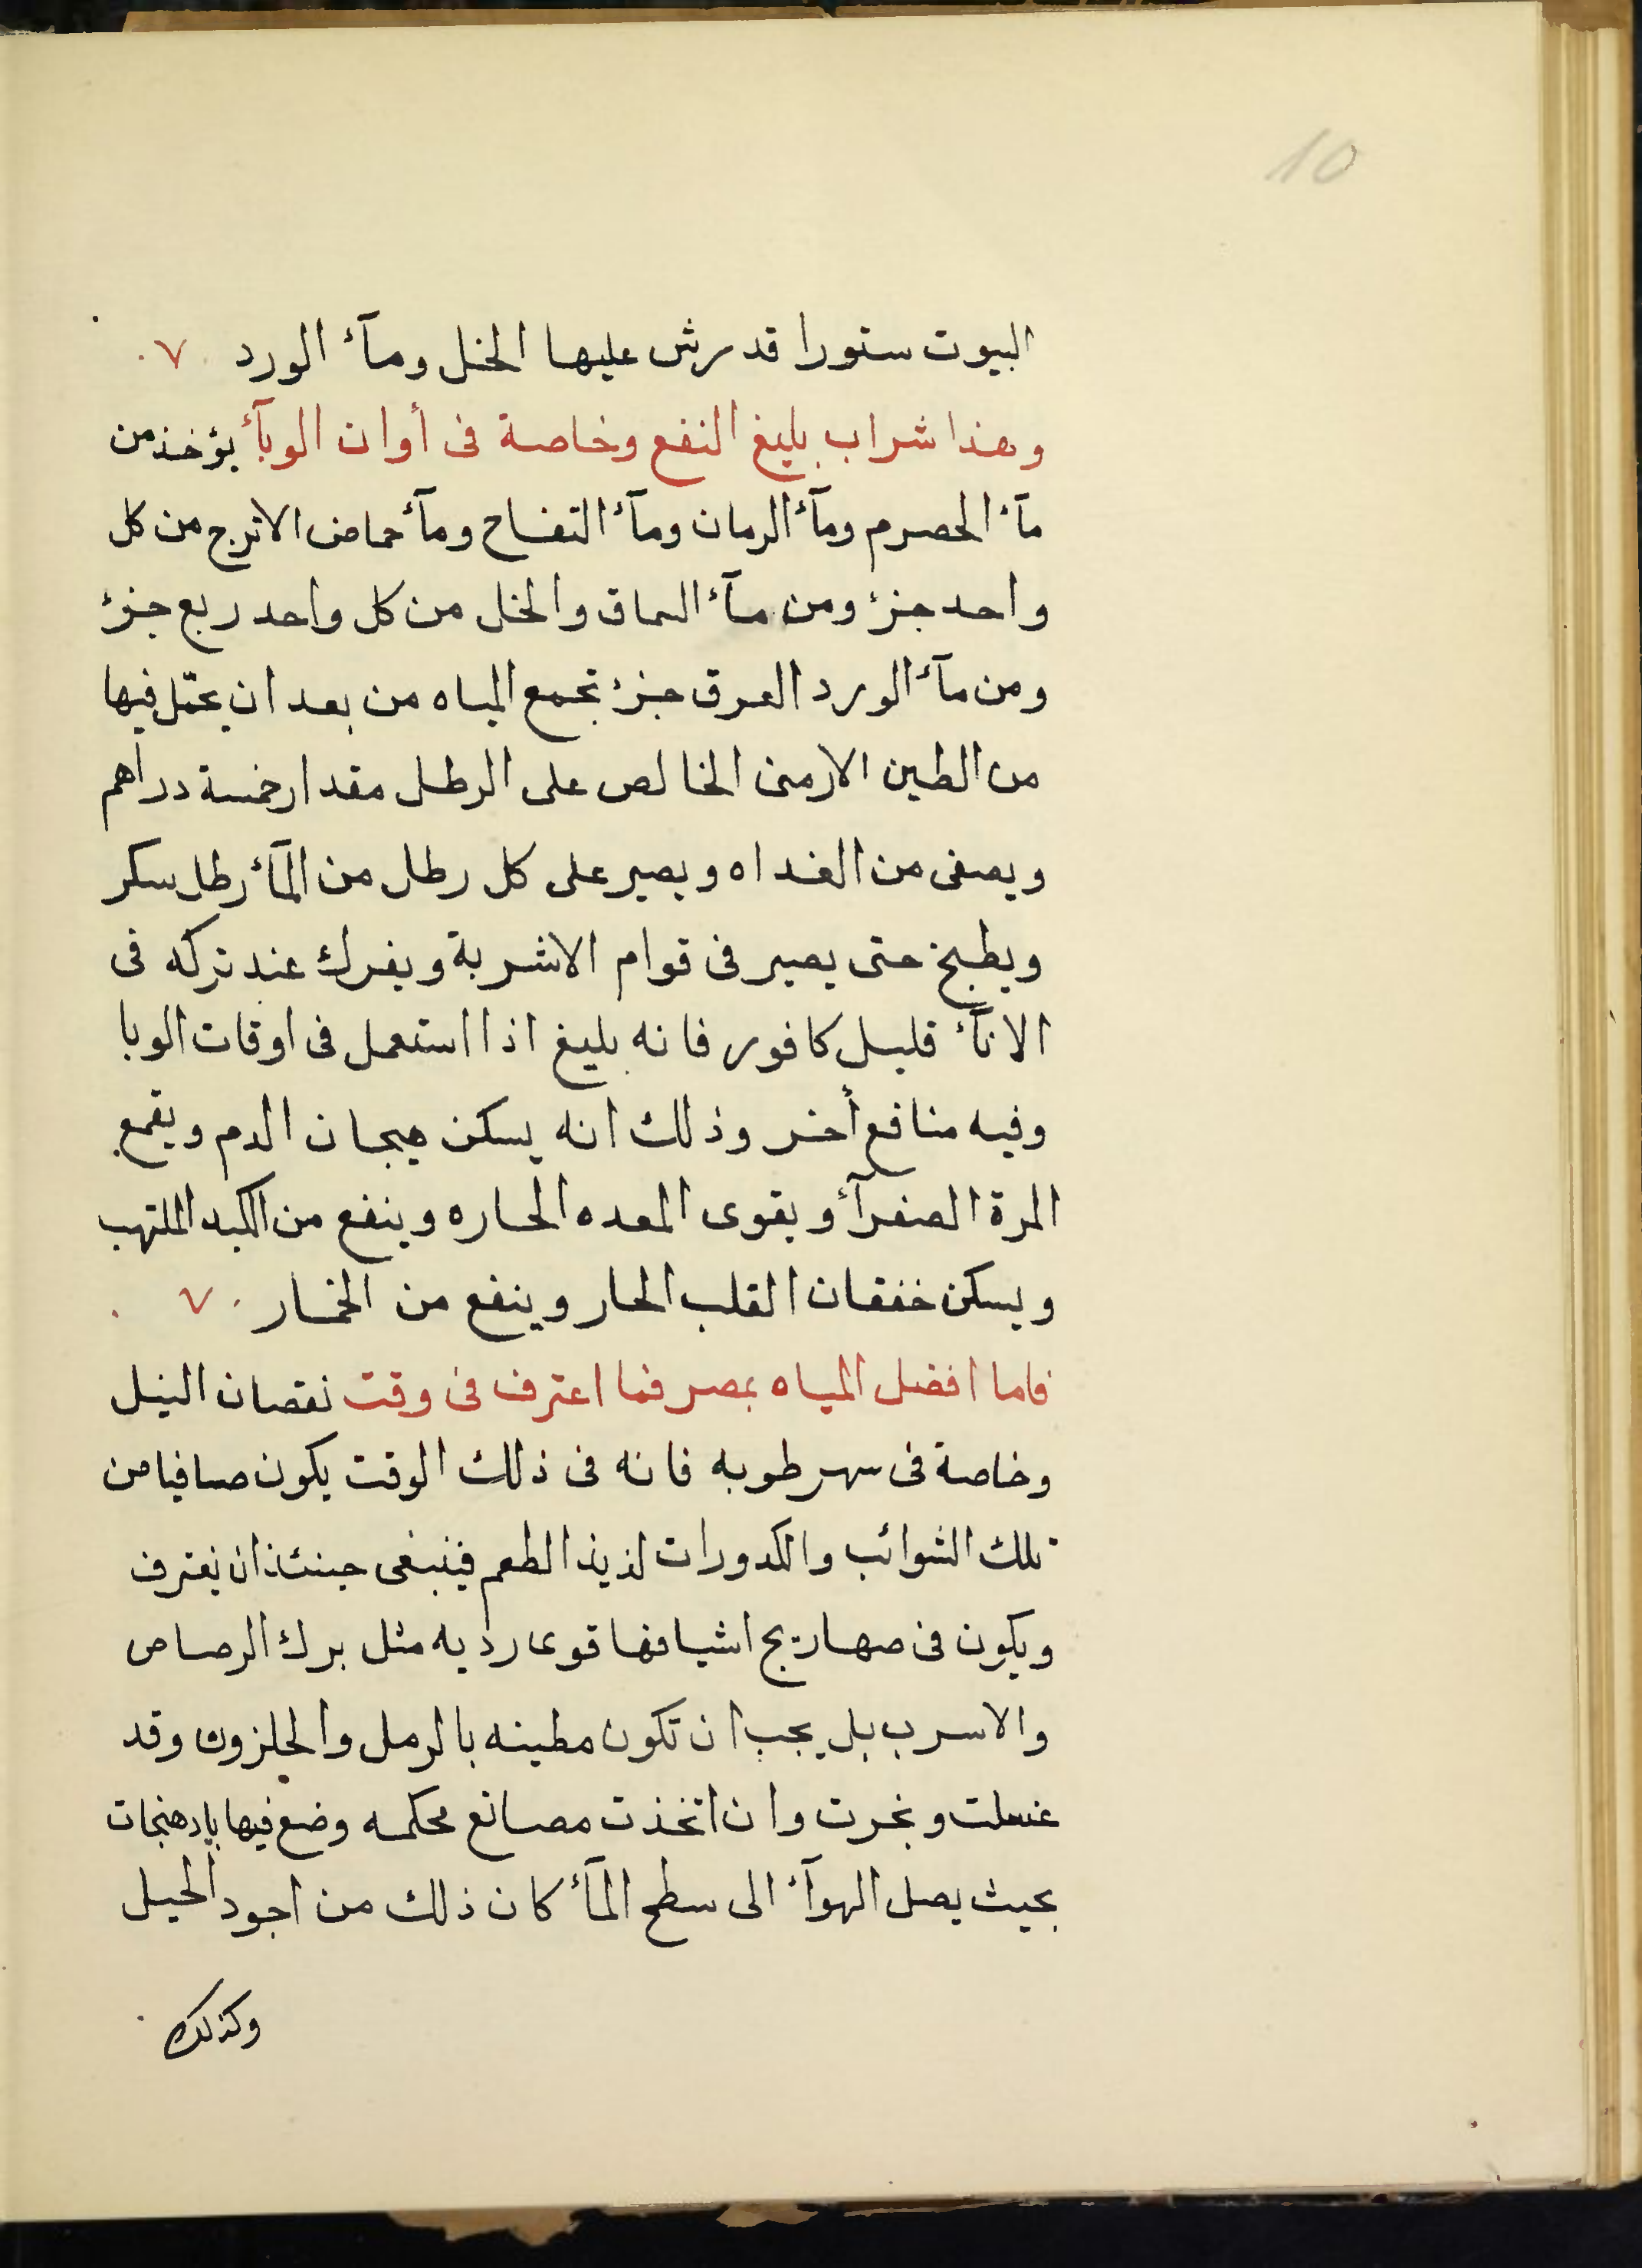 10
البيوت ستورا قد رش عليها الخل ومآء الورد
وهذا شراب بليغ النفع وخاصة فى أوان الوبآء يؤخذ من
مآء الحصرم ومآء الرمان ومآء التفاح ومآء حماض الاترج من كل
واحد جزء ومن مآء السماق والخل من كل واحد ربع جزء
ومن مآء الورد العرق جزء تجمع المياه من بعد ان يحمّل فيها
من الطين الارمنى الخالص على الرطل مقدار خمسة دراهم
ويصفى من الغداه ويصير على كل رطل من المآء رطل سكر
ويطبخ حتى يصير فى قوام الاشربة ويفرك عند تركه فى
الانآء قليل كافور فانه بليغ اذا استعمل فى اوقات الوبا
وفيه منافع أخر وذلك انه يسكن هيجان الدم ويقمع
المرة الصفرآء ويقوى المعده الحاره وينفع من الكبد الملتهب
ويسكن خفقان القلب الحار وينفع من الخمار
فاما افضل المياه بمصر فما اعترف فى وقت نقصان النيل
وخاصة فى سهر طوبه فانه فى ذلك الوقت يكون صافيا من
تلك الشوائب والكدورات لذيذ الطعم فينبغى حينئذ ان يغترف
ويكون فى صهاريج اشيافها قوى رديه مثل برك الرصاص
والاسرب بل يجب ان تكون مطينه بالرمل والحلزون وقد
غسلت وبخرت وان اتخذت مصانع محكمه وضع فيها بادهنجات
بحيث يصل الهوآء الى سطح المآء كان ذلك من اجود الحيل
وكذلك